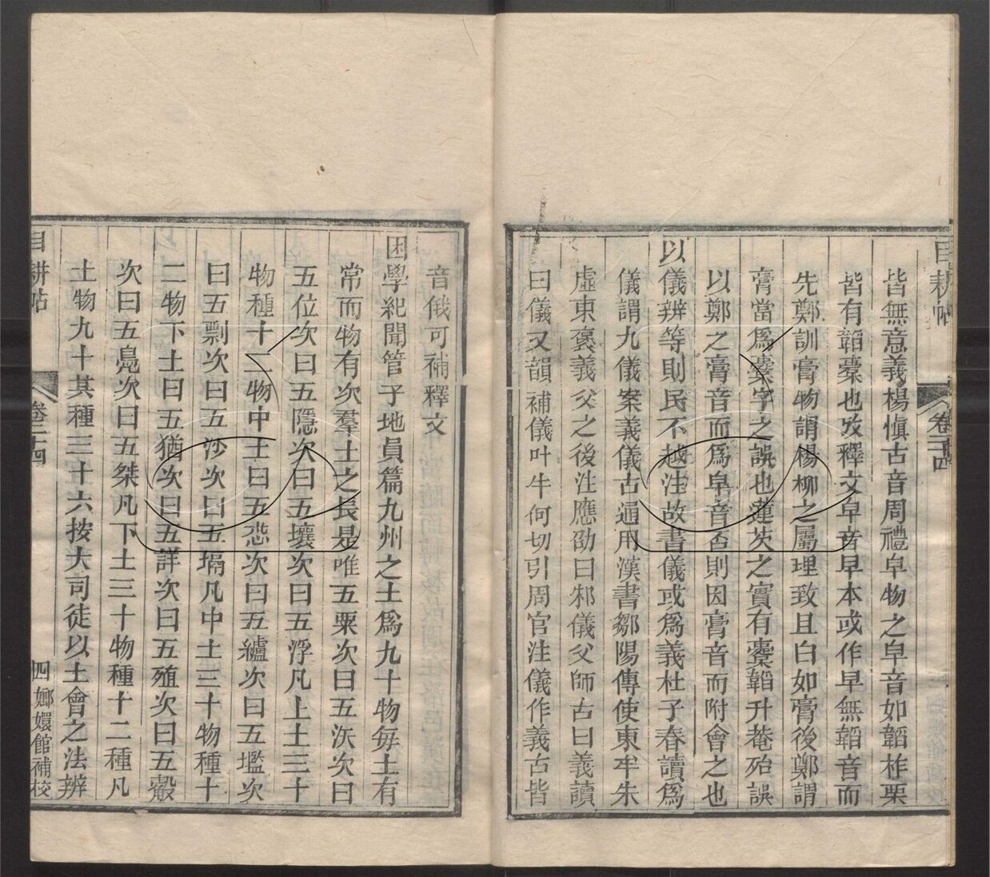 目耕帖
卷二十四
皆無意義楊愼古音周禮皁物之皁音如韜柞栗
皆有韜櫜也攷釋文皁音早本或作早無韜音而
先鄭訓膏物謂楊柳之屬理致且白如膏後鄭謂
膏當爲櫜字之誤也蓮芡之實有櫜韜升菴殆誤
以鄭之膏音而爲皁音否則因膏音而附會之也
以儀辨等則民不越注故書儀或爲義杜子春讀爲
儀謂九儀案義儀古通用漢書鄒陽傳使東牟朱
虛東襃義父之後注應劭曰邾儀父師古曰義讀
曰儀又韻補儀叶牛何切引周官注儀作義古皆
音俄可補釋文
困學紀聞管子地員篇九州之土爲九十物每土有
常而物有次羣土之長是唯五粟次曰五沃次曰
五位次曰五隱次曰五壤次曰五浮凡上土三十
物種十二物中土曰五怸次曰五纑次曰五壏次
曰五剽次曰五沙次曰五塥凡中土三十物種十
二物下土曰五猶次曰五𦎫次曰五殖次曰五觳
次曰五鳧次曰五桀凡下土三十物種十二種凡
土物九十其種三十六按大司徒以土會之法辨
目耕帖
卷二十四
四
嫏嬛館補校